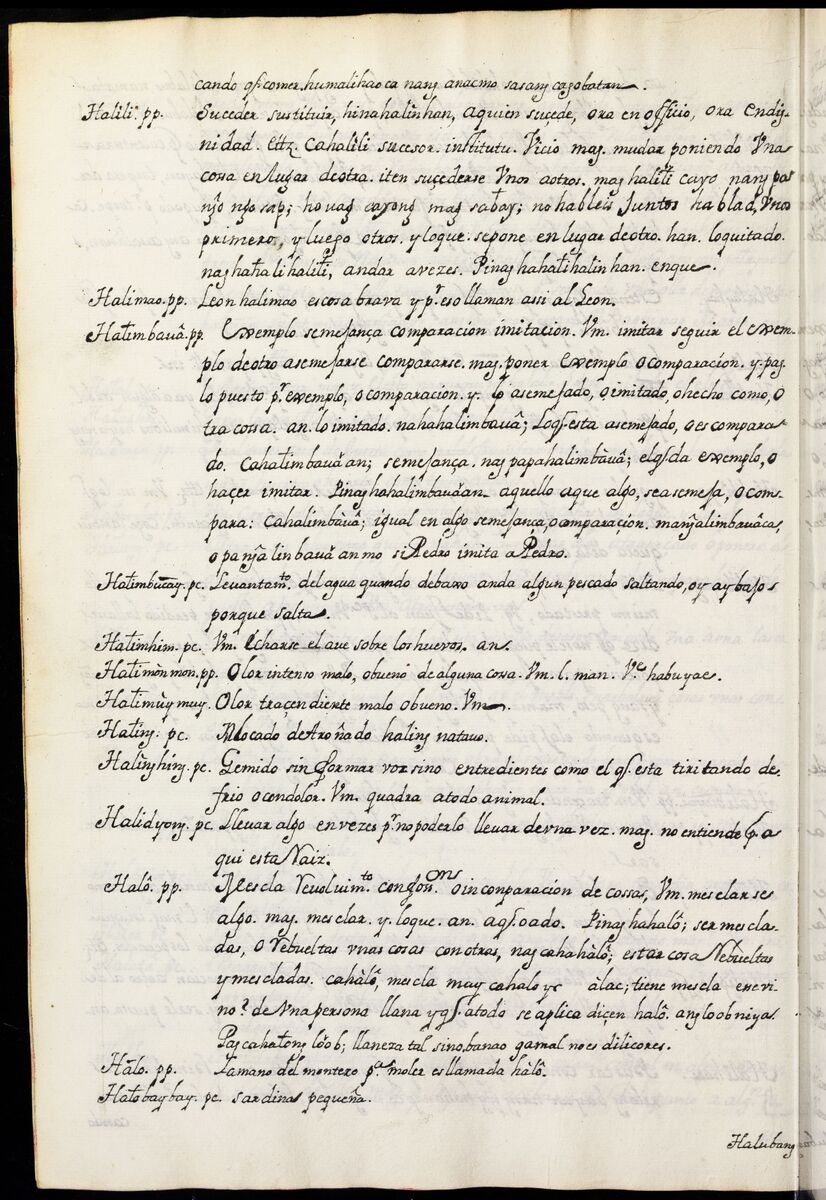 cando qe. comer. humalihao ca nang anac mo sasang cagobatan.
Halili. pp. Suceder sustituir, hinahalinhan, aquien sucede, ora en officio, ora en dig-
nidad. ettz. cahalili sucesor. institutu. Vicio mag. mudar poniendo Vna
cossa en lugar de otra. iten suçederse Vnos aotros. mag halili cayo nang pa
ngo ngosap; houag cayong mag sabay; no hableis Juntos hablad, Vnos
primero, y luego otros. y loque. se pone en lugar de otro. han. lo quitado.
naghahalihalili, andar a vezes. Pinaghahalihalinhan. enque.
Halimao. pp. Leon halimao es cosa brava y pr. eso llaman assi al Leon.
Halimbauâ. pp. Exemplo semejança comparacion imitacion. Vm. imitar seguir el exem-
plo de otro asemejarse compararse. mag. poner exemplo o comparacion. y. pag.
lo puesto pr. exemplo, o comparacion. y. lo asemejado, o imitado, o hecho como, o
tra cossa. an. lo imitado. nahahalimbauâ; Loq. esta asemejado, o es compara-
do. cahalimbauâan; semejança. nagpapahalimbàuâ; elq. da exemplo, o
haçer imitar. Pinaghahalimbauâan aquello aque algo, se asemeja, o com-
para: cahalimbàuâ; igual en algo semejança, o comparaçion. mangalimbauâ ca,
o pangalinbauâ an mo si Pedro imita a Pedro.
Halimbucay. pc. Levantamto. del agua quando debaxo anda algun pescado saltando, o y ay bajos
porque salta.
Halimhim. pc. Vm. Echarse el ave sobre los huevos. an.
Halimònmon. pp. Olor intenso malo, o bueno de alguna cossa. Vm. l. man. Ve. habuyac.
Halimùymuy. Olor trascendiente malo o bueno. Vm.
Haling. pc. Alocado de Aroñado haling natauo.
Halinghing. pc. Gemido sin formar voz sino entre dientes como el q. esta tiritando de
frio o con dolor. Vm. quadra atodo animal.
Halidyong. pc. Llevar algo en vezes pr. no poderlo lleuar de vna vez. mag. no entiende pa
qui esta Naiz.
Halô. pp. Mescla revoluimto. confon. o in conparacion de cossas, Vm. mesclarse
algo. mag. mesclar. y. loque. an. aq. oado. Pinaghahalô; ser mescla-
das, o rebueltas vnas cosas con otras, nagcahahàlô; estar cosa Rebueltas
y mescladas. cahàlô, mescla may cahalo yc àlac; tiene mescla ese vi-
no. de Vna persona llana y q. atodo se aplica diçen halô. ang loob niya.
Pagcahalong lôob; llaneza tal sino, banao gamal no es di licores.
Hàlo. pp. La mano del montero pa. moler es llamada hàlô.
Halobaybay. pc. sardinas pequeña.
Halubang